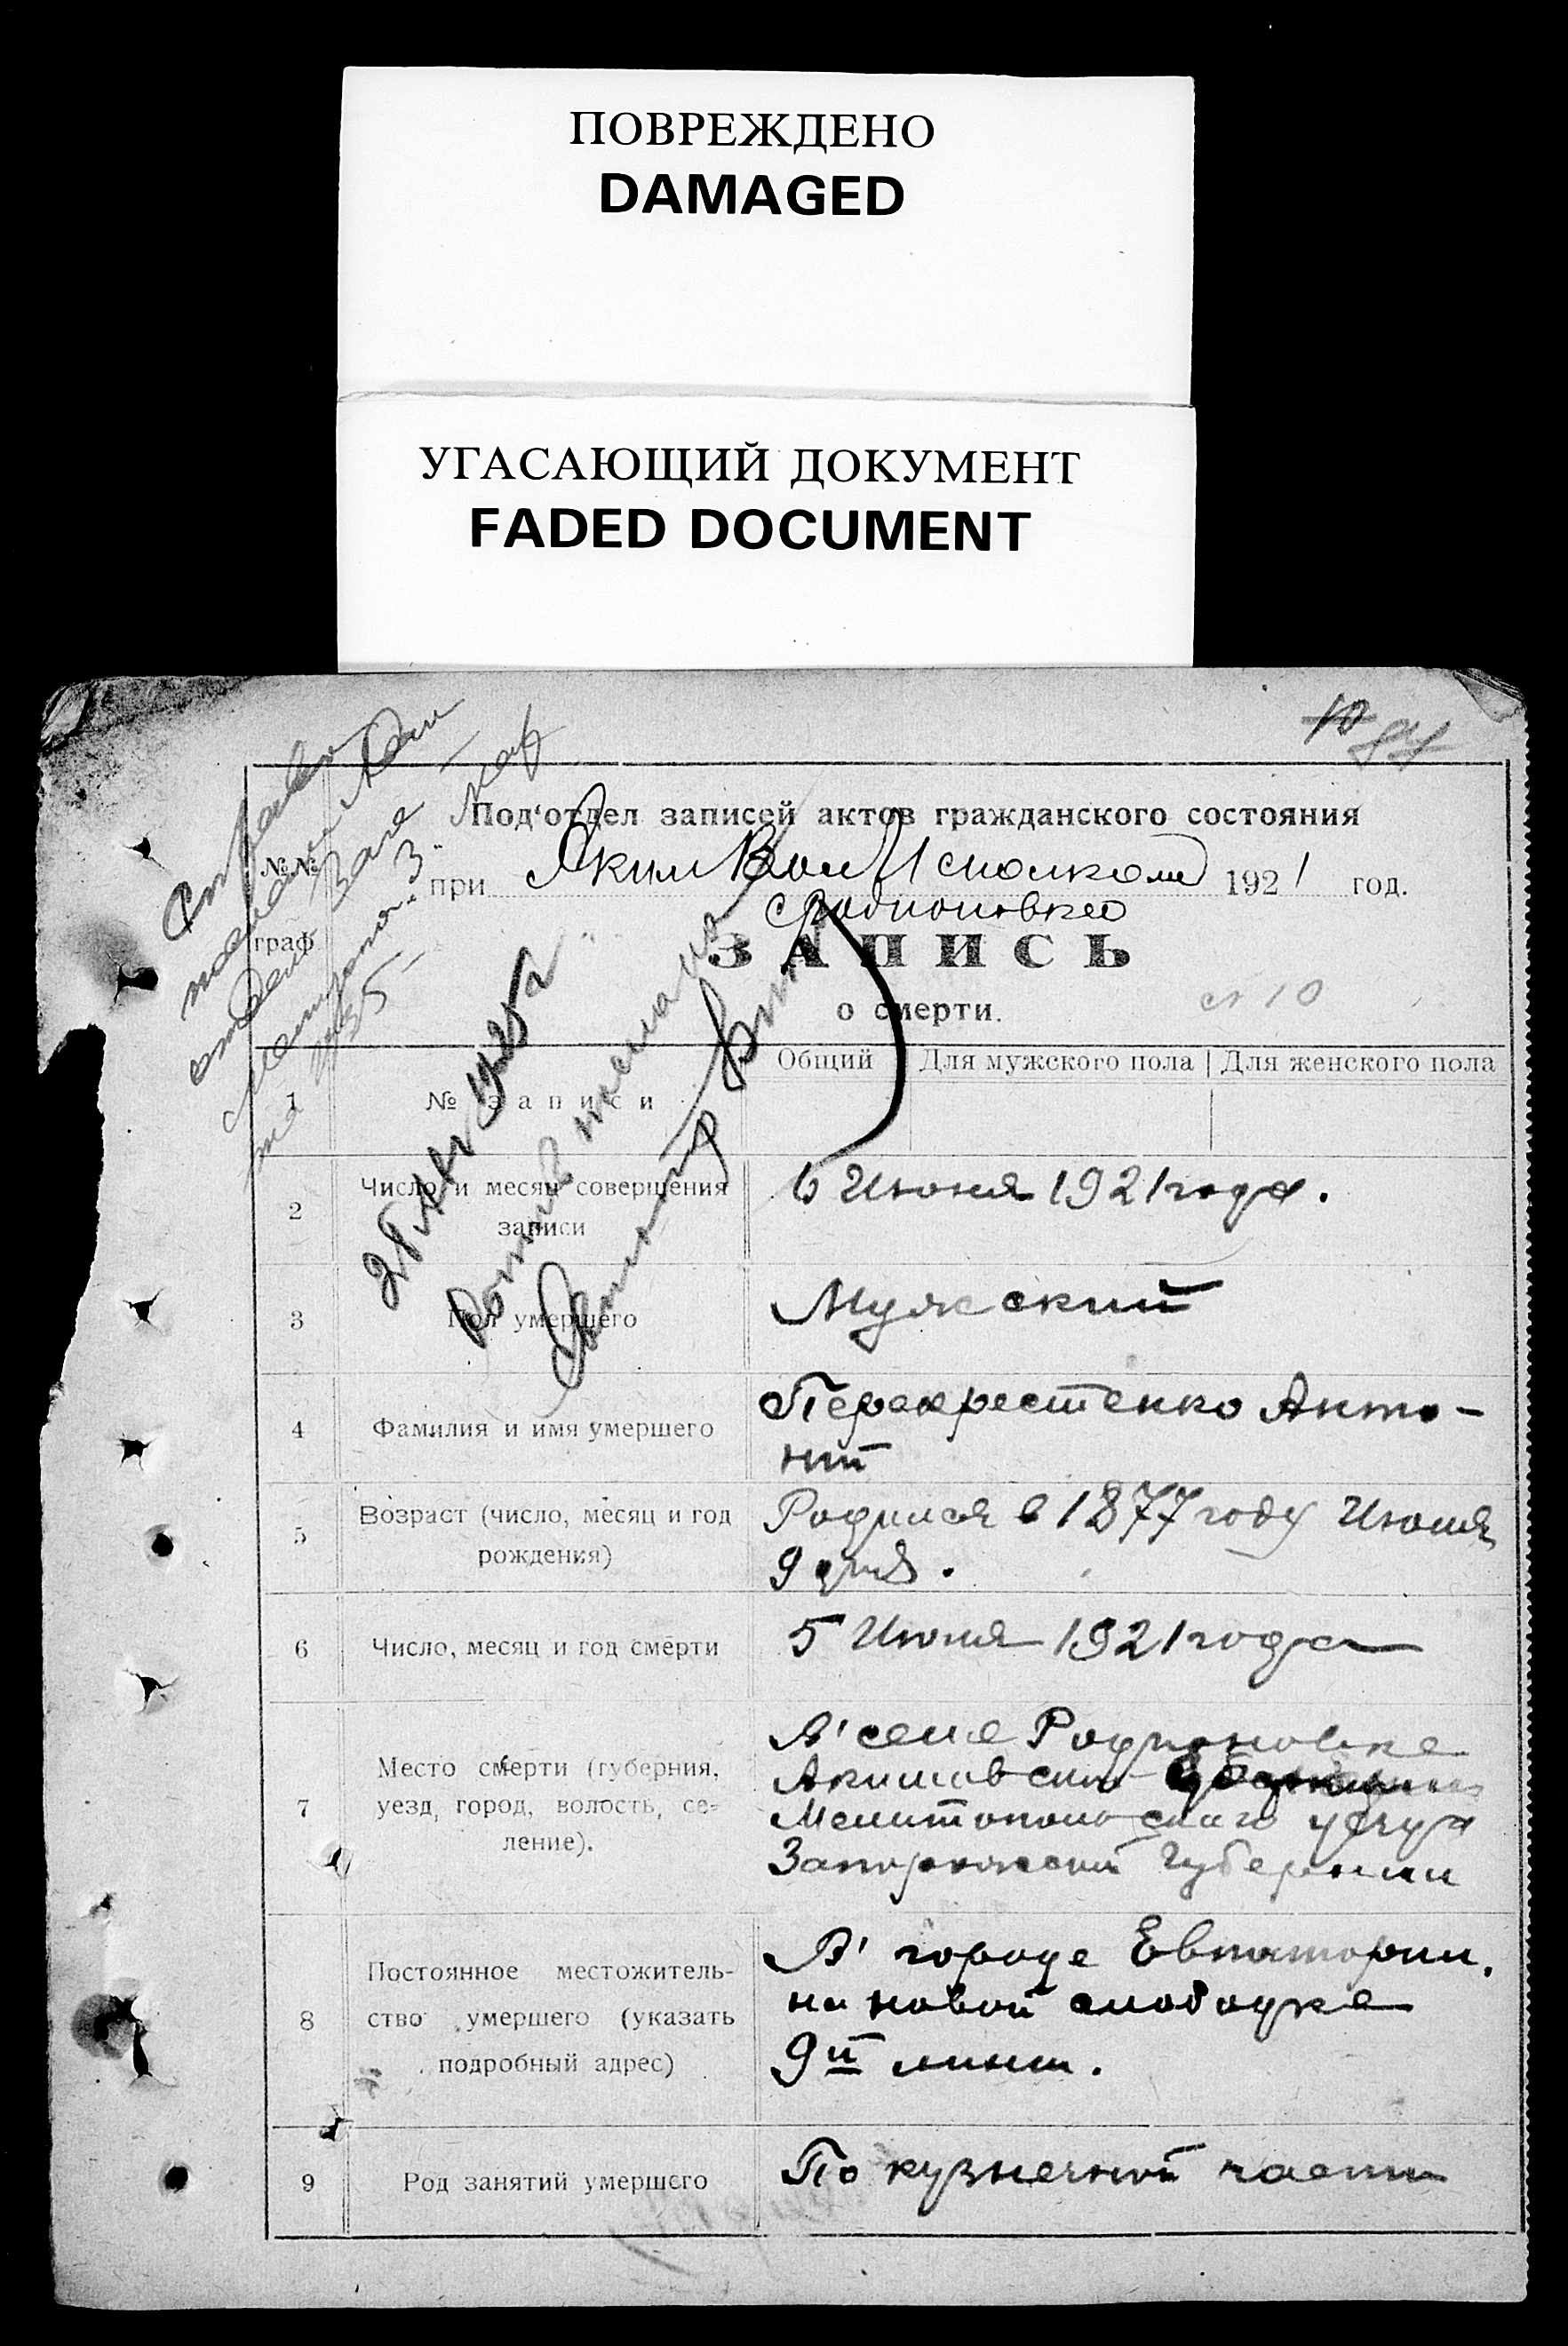 ПОВРЕЖДЕНО
DAMAGED
УГАСАЮЩИЙ ДОКУМЕНТ
FADED DOCUMENT
10
Под'отдел записей актов гражданского состояния
при Аким Вол Исполкоме 1921 год.
№№
граф
ЗАПИСЬ
о смерти.
№ 10
Общий | Для мужского пола | Для женского пола
1 № записи
2 Число и месяц совершения
записи
6 Июня 1921 года.
3 Пол умершего
Мужский
4 Фамилия и имя умершего
Перекрестенко Анто-
ний
5 Возраст (число, месяц и год
рождения)
Родился в 1877 году Июня
9 дня.
6 Число, месяц и год смерти
5 Июня 1921 года
7 Место смерти (губерния,
уезд, город, волость, се-
ление).
В' селе Родионовке
Акимовской
Мелитопольскаго уезда
Запорожской Губернии
8 Постоянное местожитель-
ство умершего (указать
подробный адрес)
В' городе Евпатории.
на новой слободке
9й линии.
9 Род занятий умершего
По кузнечной части